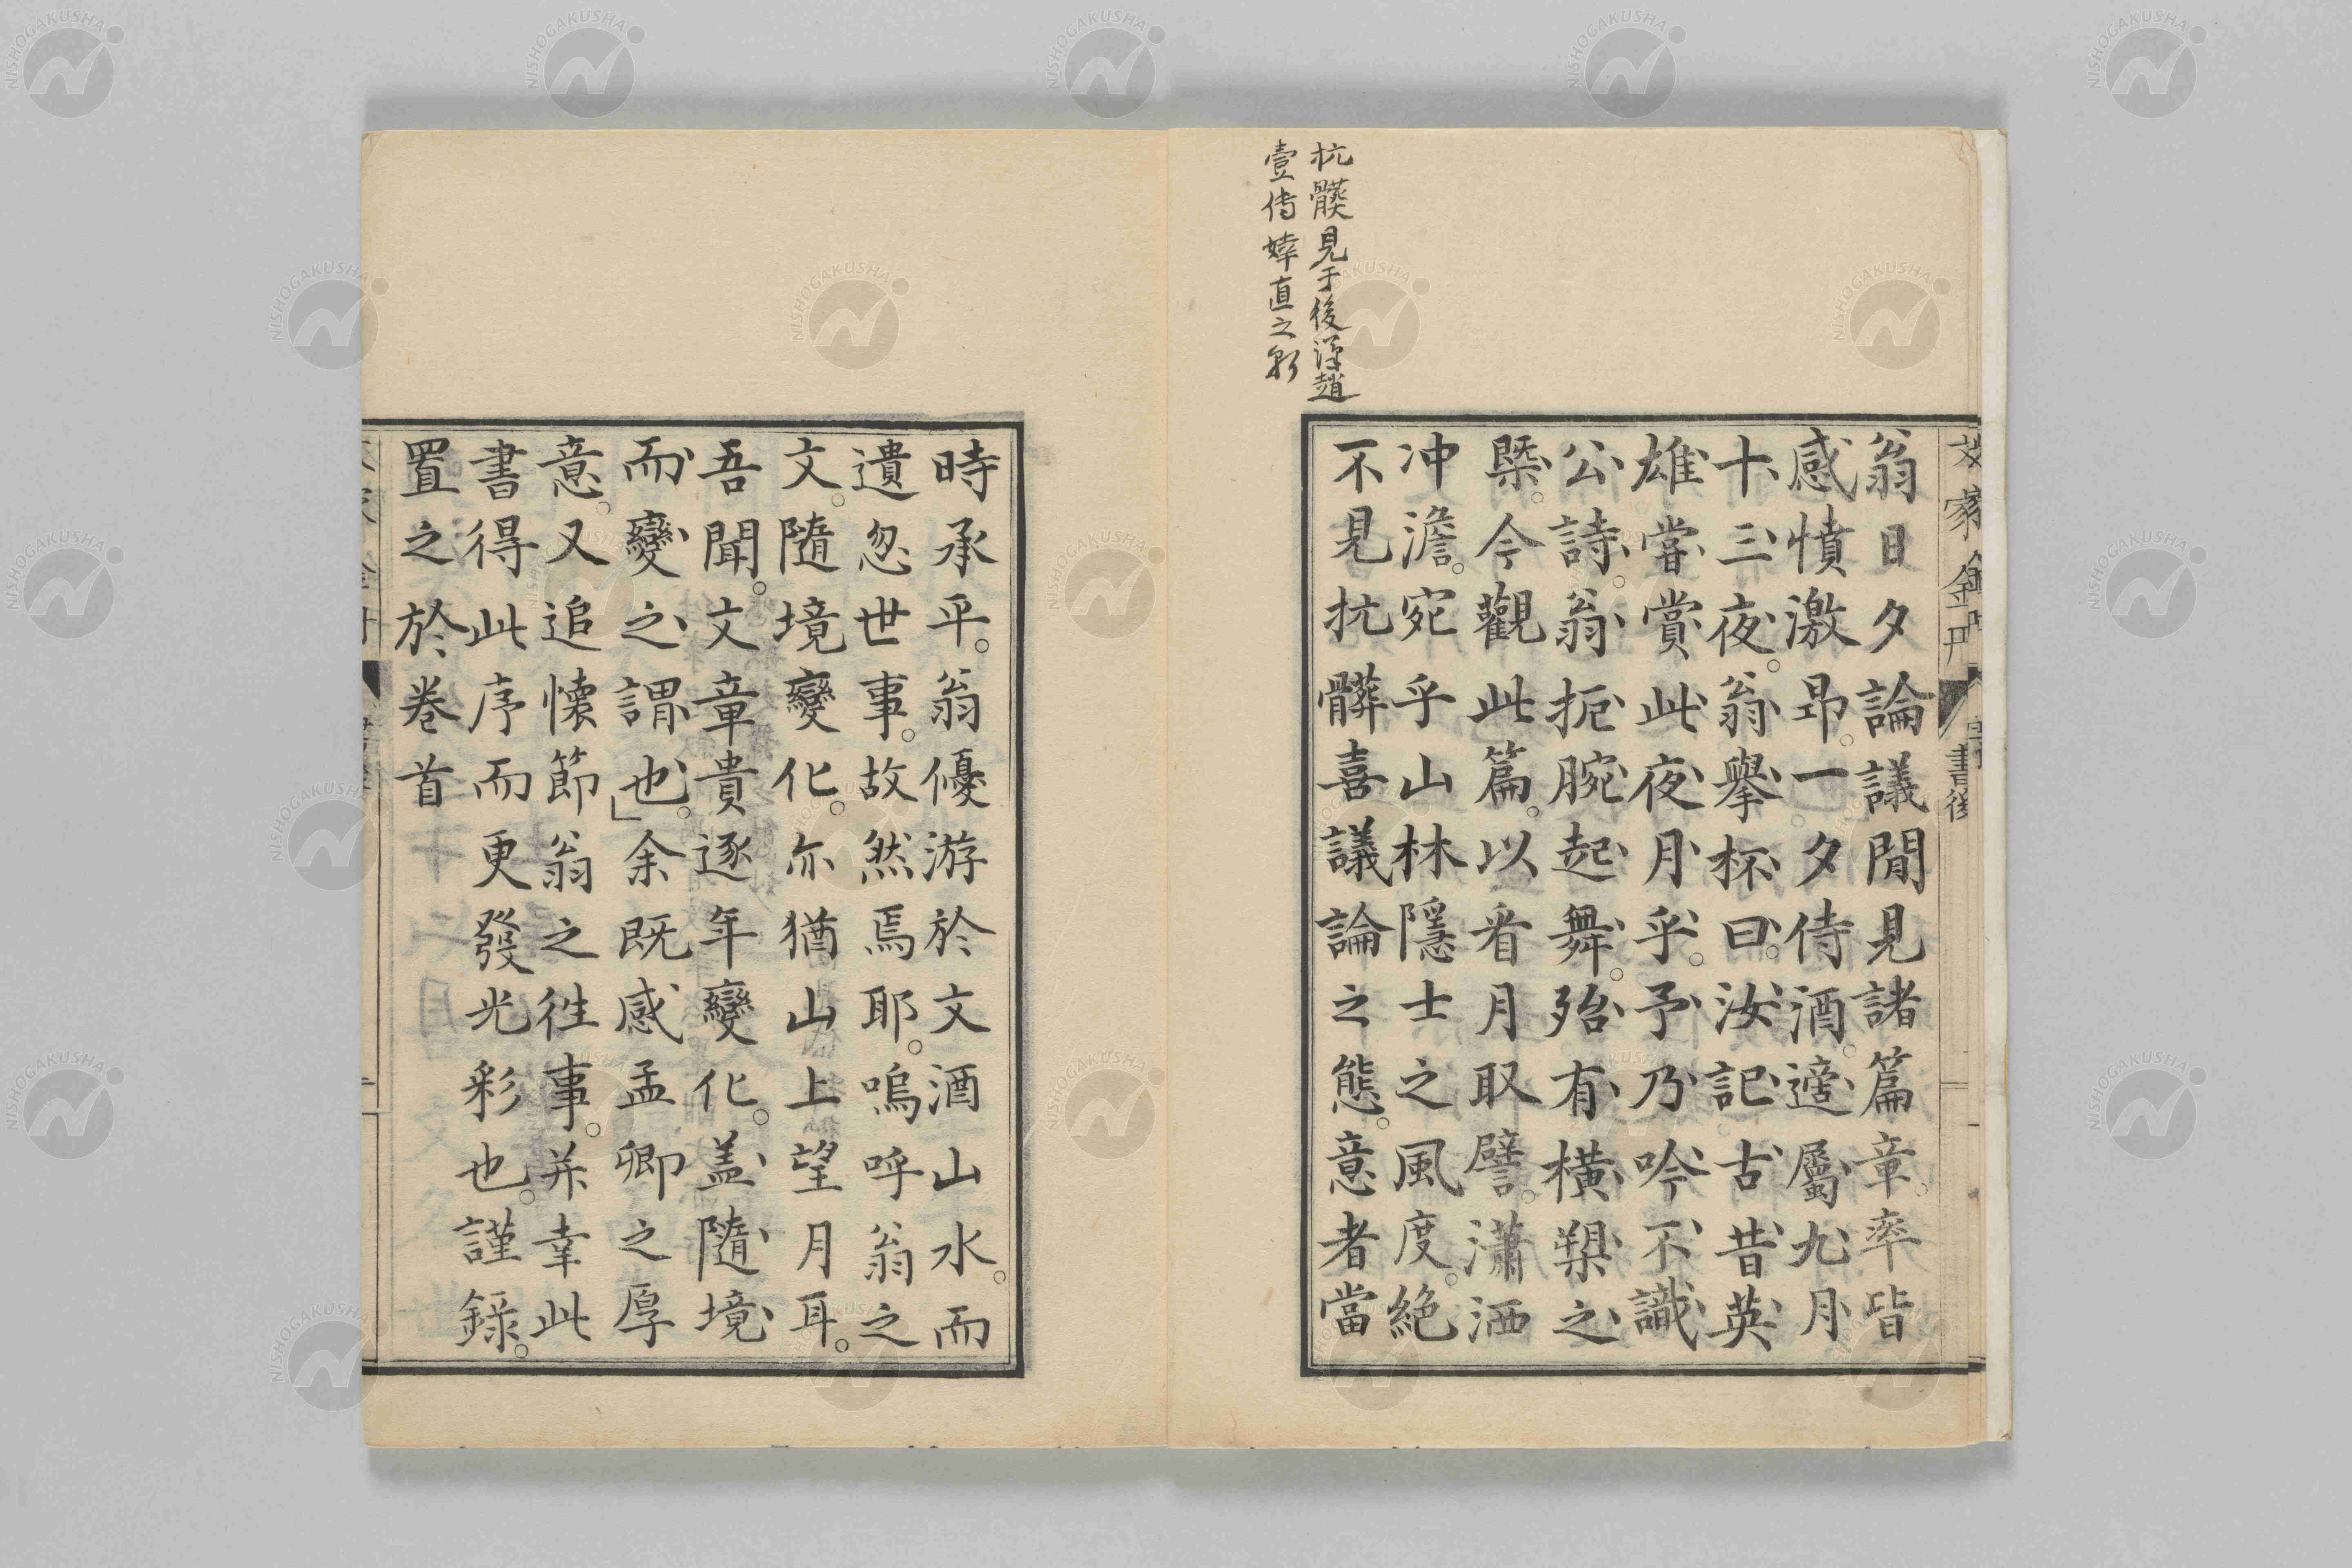 文家金丹 書後 一
翁日夕論議閒見諸篇章。率皆
感憤激昂。一夕侍酒。適屬九月
十三夜。翁擧杯曰。汝記古昔英
雄嘗賞此夜月乎。予乃吟不識
公詩。翁扼腕起舞。殆有橫槊之
槩。今觀此篇。以看月取譬。瀟洒
冲澹。宛乎山林隱士之風度。絶
不見抗髒喜議論之態。意者當
抗髒見于後漢趙
壹傳婞直之皃
時承平。翁優游於文酒山水。而
遺忽世事。故然焉耶。嗚呼翁之
文。隨境變化。亦猶山上望月耳。
吾聞。文章貴逐年變化。盖隨境
而變之謂也。」余既感孟卿之厚
意。又追懐節翁之徃事。并幸此
書得此序而更發光彩也。謹錄。
置之於卷首
NISHOGAKUSHA